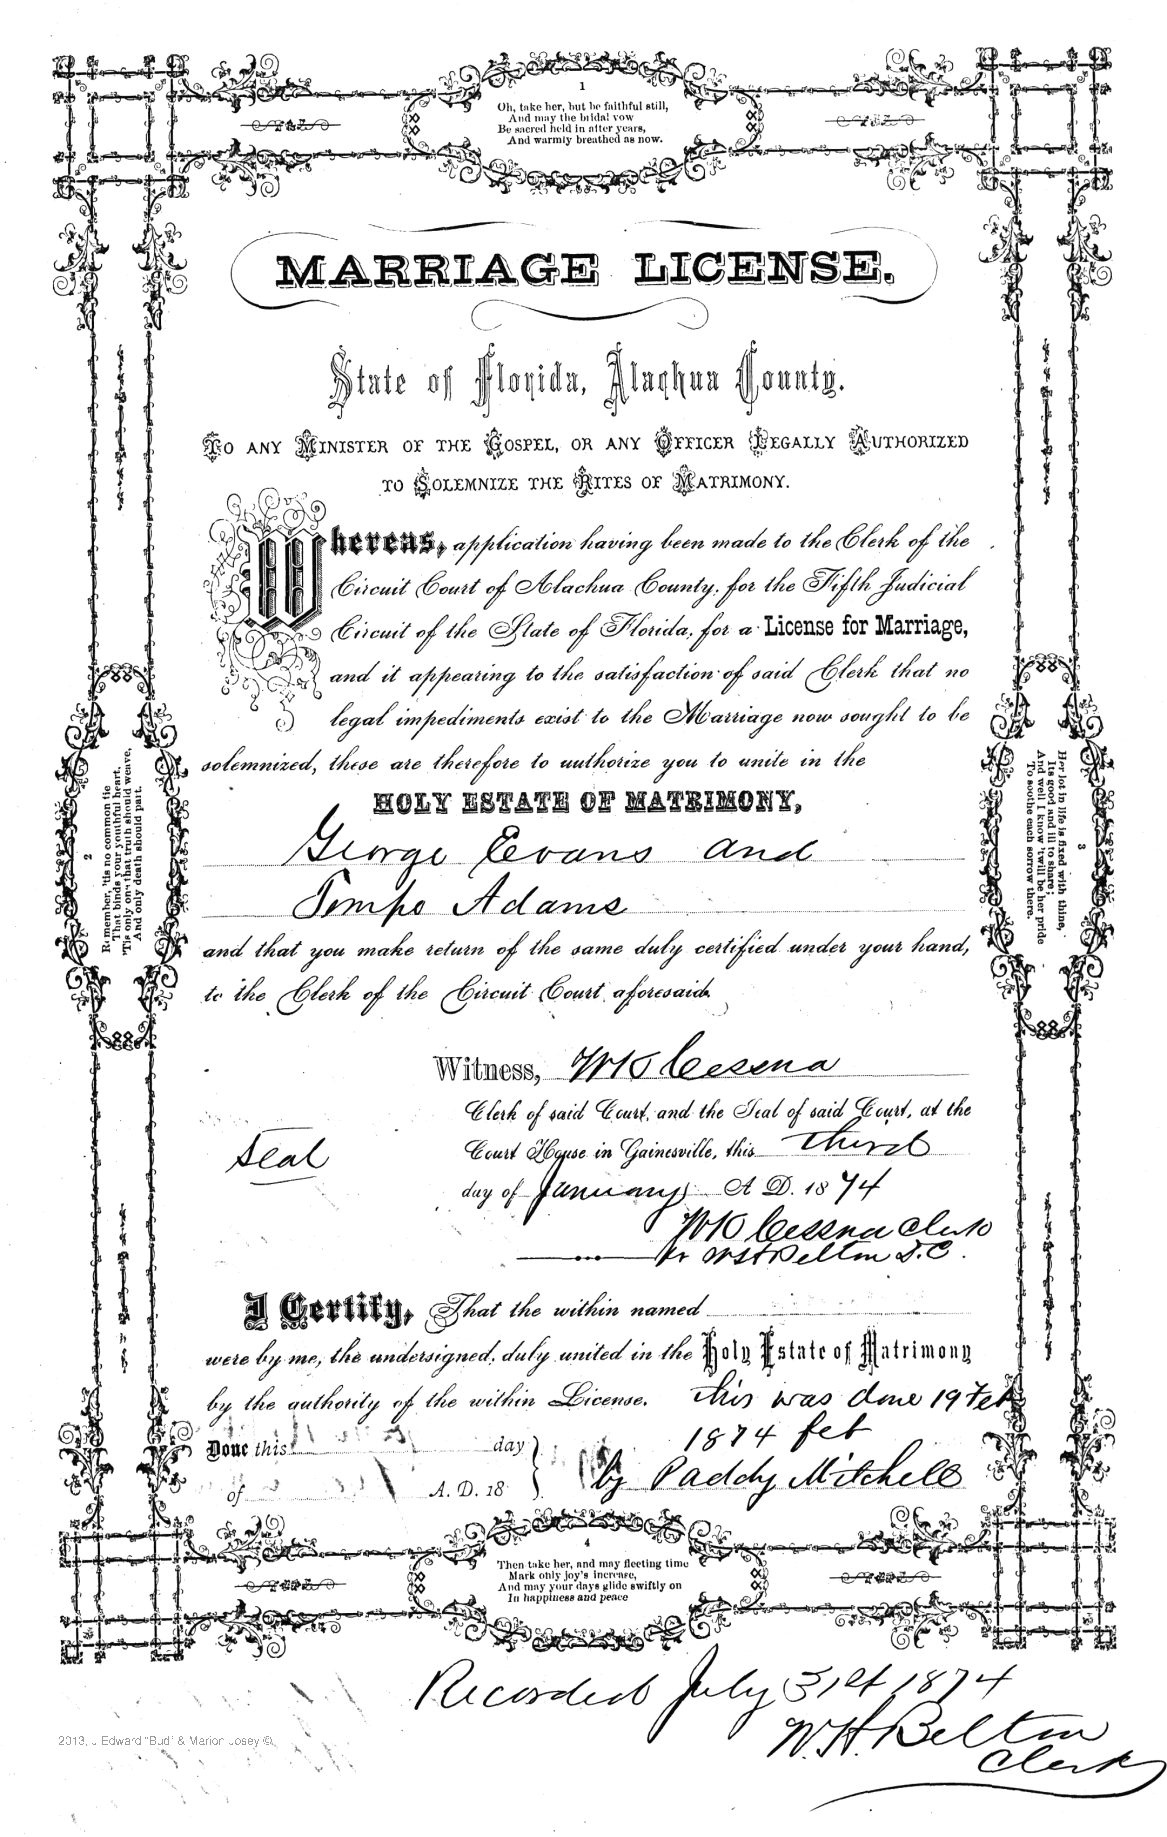 1
Oh, take her, but be faithful still,
And may the bridal vow
Be sacred held in after years,
And warmly breathed as now.
MARRIAGE LICENSE.
State of Florida, Alachua County.
TO ANY MINISTER OF THE GOSPEL, OR ANY OFFICER LEGALLY AUTHORIZED
TO SOLEMNIZE THE RITES OF MATRIMONY.
Whereas, application having been made to the Clerk of the
Circuit Court of Alachua County, for the Fifth Judicial
Circuit of the State of Florida, for a License for Marriage,
and it appearing to the satisfaction of said Clerk that no
legal impediments exist to the Marriage now sought to be
solemnized, these are therefore to authorize you to unite in the
HOLY ESTATE OF MATRIMONY,
George Evans and
Tempo Adams
and that you make return of the same duly certified under your hand,
to the Clerk of the Circuit Court aforesaid.
2
Remember, 'tis no common tie
That binds your youthful heart,
'Tis only one that truth should weave,
And only death should part.
3
Her lot in life is fixed with thine,
Its good and ill to share;
And well I know 'twill be her pride
To soothe each sorrow there.
Witness, WK Cessna
Clerk of said Court, and the Seal of said Court, at the
Seal
Court House in Gainesville, this third
day of January A. D. 1874
WK Cessna Clerk
WH Belton D.C.
I Certify, That the within named
were by me, the undersigned, duly united in the Holy Estate of Matrimony
by the authority of the within License. this was done 19 Feb
Done this day 1874 feb
of A. D. 18 by Paddy Mitchell
4
Then take her, and may fleeting time
Mark only joy's increase,
And may your days glide swiftly on
In happiness and peace
Recorded July 31st 1874
W.H. Belton
Clerk
2013, . Edward "Bud" & Marion Josey ©